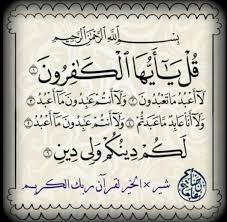 بِسْمِ اللَّهِ الرَّحْمَٰنِ الرَّحِيمِ
قُلْ يَا أَيُّهَا الْكَافِرُونَ ١
لَا أَعْبُدُ مَا تَعْبُدُونَ ٢ وَلَا أَنْتُمْ عَابِدُونَ مَا أَعْبُدُ ٣
وَلَا أَنَا عَابِدٌ مَا عَبَدْتُمْ ٤ وَلَا أَنْتُمْ عَابِدُونَ مَا أَعْبُدُ ٥
لَكُمْ دِينُكُمْ وَلِيَ دِينِ ٦
الخير لقرآن ربك الكريم